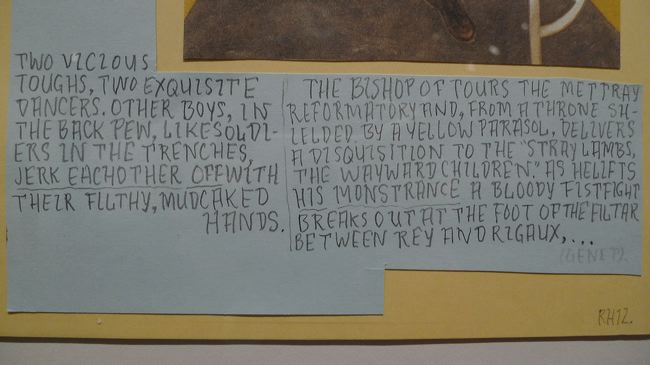 TWO VICIOUS
TOUGHS, TWO EXQUISITE
DANCERS. OTHER BOYS, IN
THE BACK PEW, LIKE SOLDI-
ERS IN THE TRENCHES,
JERK EACHOTHER OFF WITH
THEIR FILTHY, MUDCAKED
HANDS.
THE BISHOP OF TOURS THE METTRAY
REFORMATORY AND, FROM A THRONE SH-
IELDED BY A YELLOW PARASOL, DELIVERS
A DISQUISITION TO THE "STRAY LAMBS,
THE WAYWARD CHILDREN." AS HE LIFTS
HIS MONSTRANCE A BLOODY FISTFIGHT
BREAKS OUT AT THE FOOT OF THE ALTAR
BETWEEN REY AND RIGAUX,...
(GENET)
RH12.